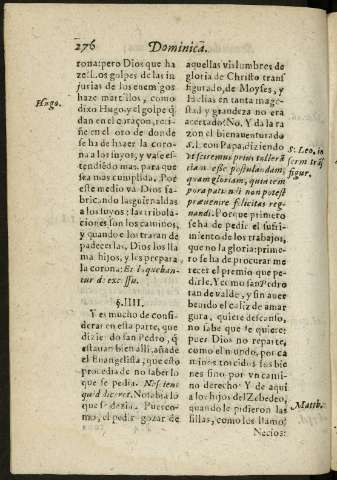 276 Dominica.
rona: pero Dios que ha
ze: Los golpes de las in
jurias de los enemigos
haze martillos, como
Hugo.
dixo Hugo y el golpe q̃
dan en el coraçon, resi-
ñe en el oro de donde
se ha de hazer la corona
a los suyos; y va le es-
tendiẽdo mas, para que
sea mas cumplida. Por
este medio va Dios fa-
bricando las guirnaldas
a los suyos: las tribula-
ciones son los caminos,
y quando e los tratan de
padecerlas, Dios los lla
ma hijos, y les prepara
la corona:
§. IIII.
Y es mucho de consi-
derar en esta parte, que
diziendo san Pedro, q̃
estauan bien alli, añade
el Euangelista, que esto
procedia de no saber lo
que se pedia.
Nota bia lo
que se dezia. Pues co-
mo, el pedir gozar de
aquellas vislumbres de
gloria de Christo trans
figurado, de Moyses, y
Helias en tanta mages-
tad y grandeza no era
acertado? No. Y da la ra
zon el bienauenturado
S. Leon Papa, diziendo
S. Leo, in
serm trãs
figur.
Nesciremus prius tollerã
tiam esse postulandam,
quam gloriam, quia tem
pora patiendi non potest
præuenire felicitas reg-
nandi. Porque primero
se ha de pedir el sufri-
miento de los trabajos,
que no la gloria: prime-
ro se ha de procurar me
recer el premio que pe-
dirle. Y como san Pedro
tan de valde, y sin auer
bebido el caliz de amar
gura, quiere descanso,
no sabe que se quiere:
pues Dios no reparte,
como el mundo, por ca
minos torcidos sus bie
nes sino por vn cami-
no derecho. Y de aqui
a los hijos del Zebedeo,
Matth.
quando le pidieron las
sillas, como les llamo
Necios: